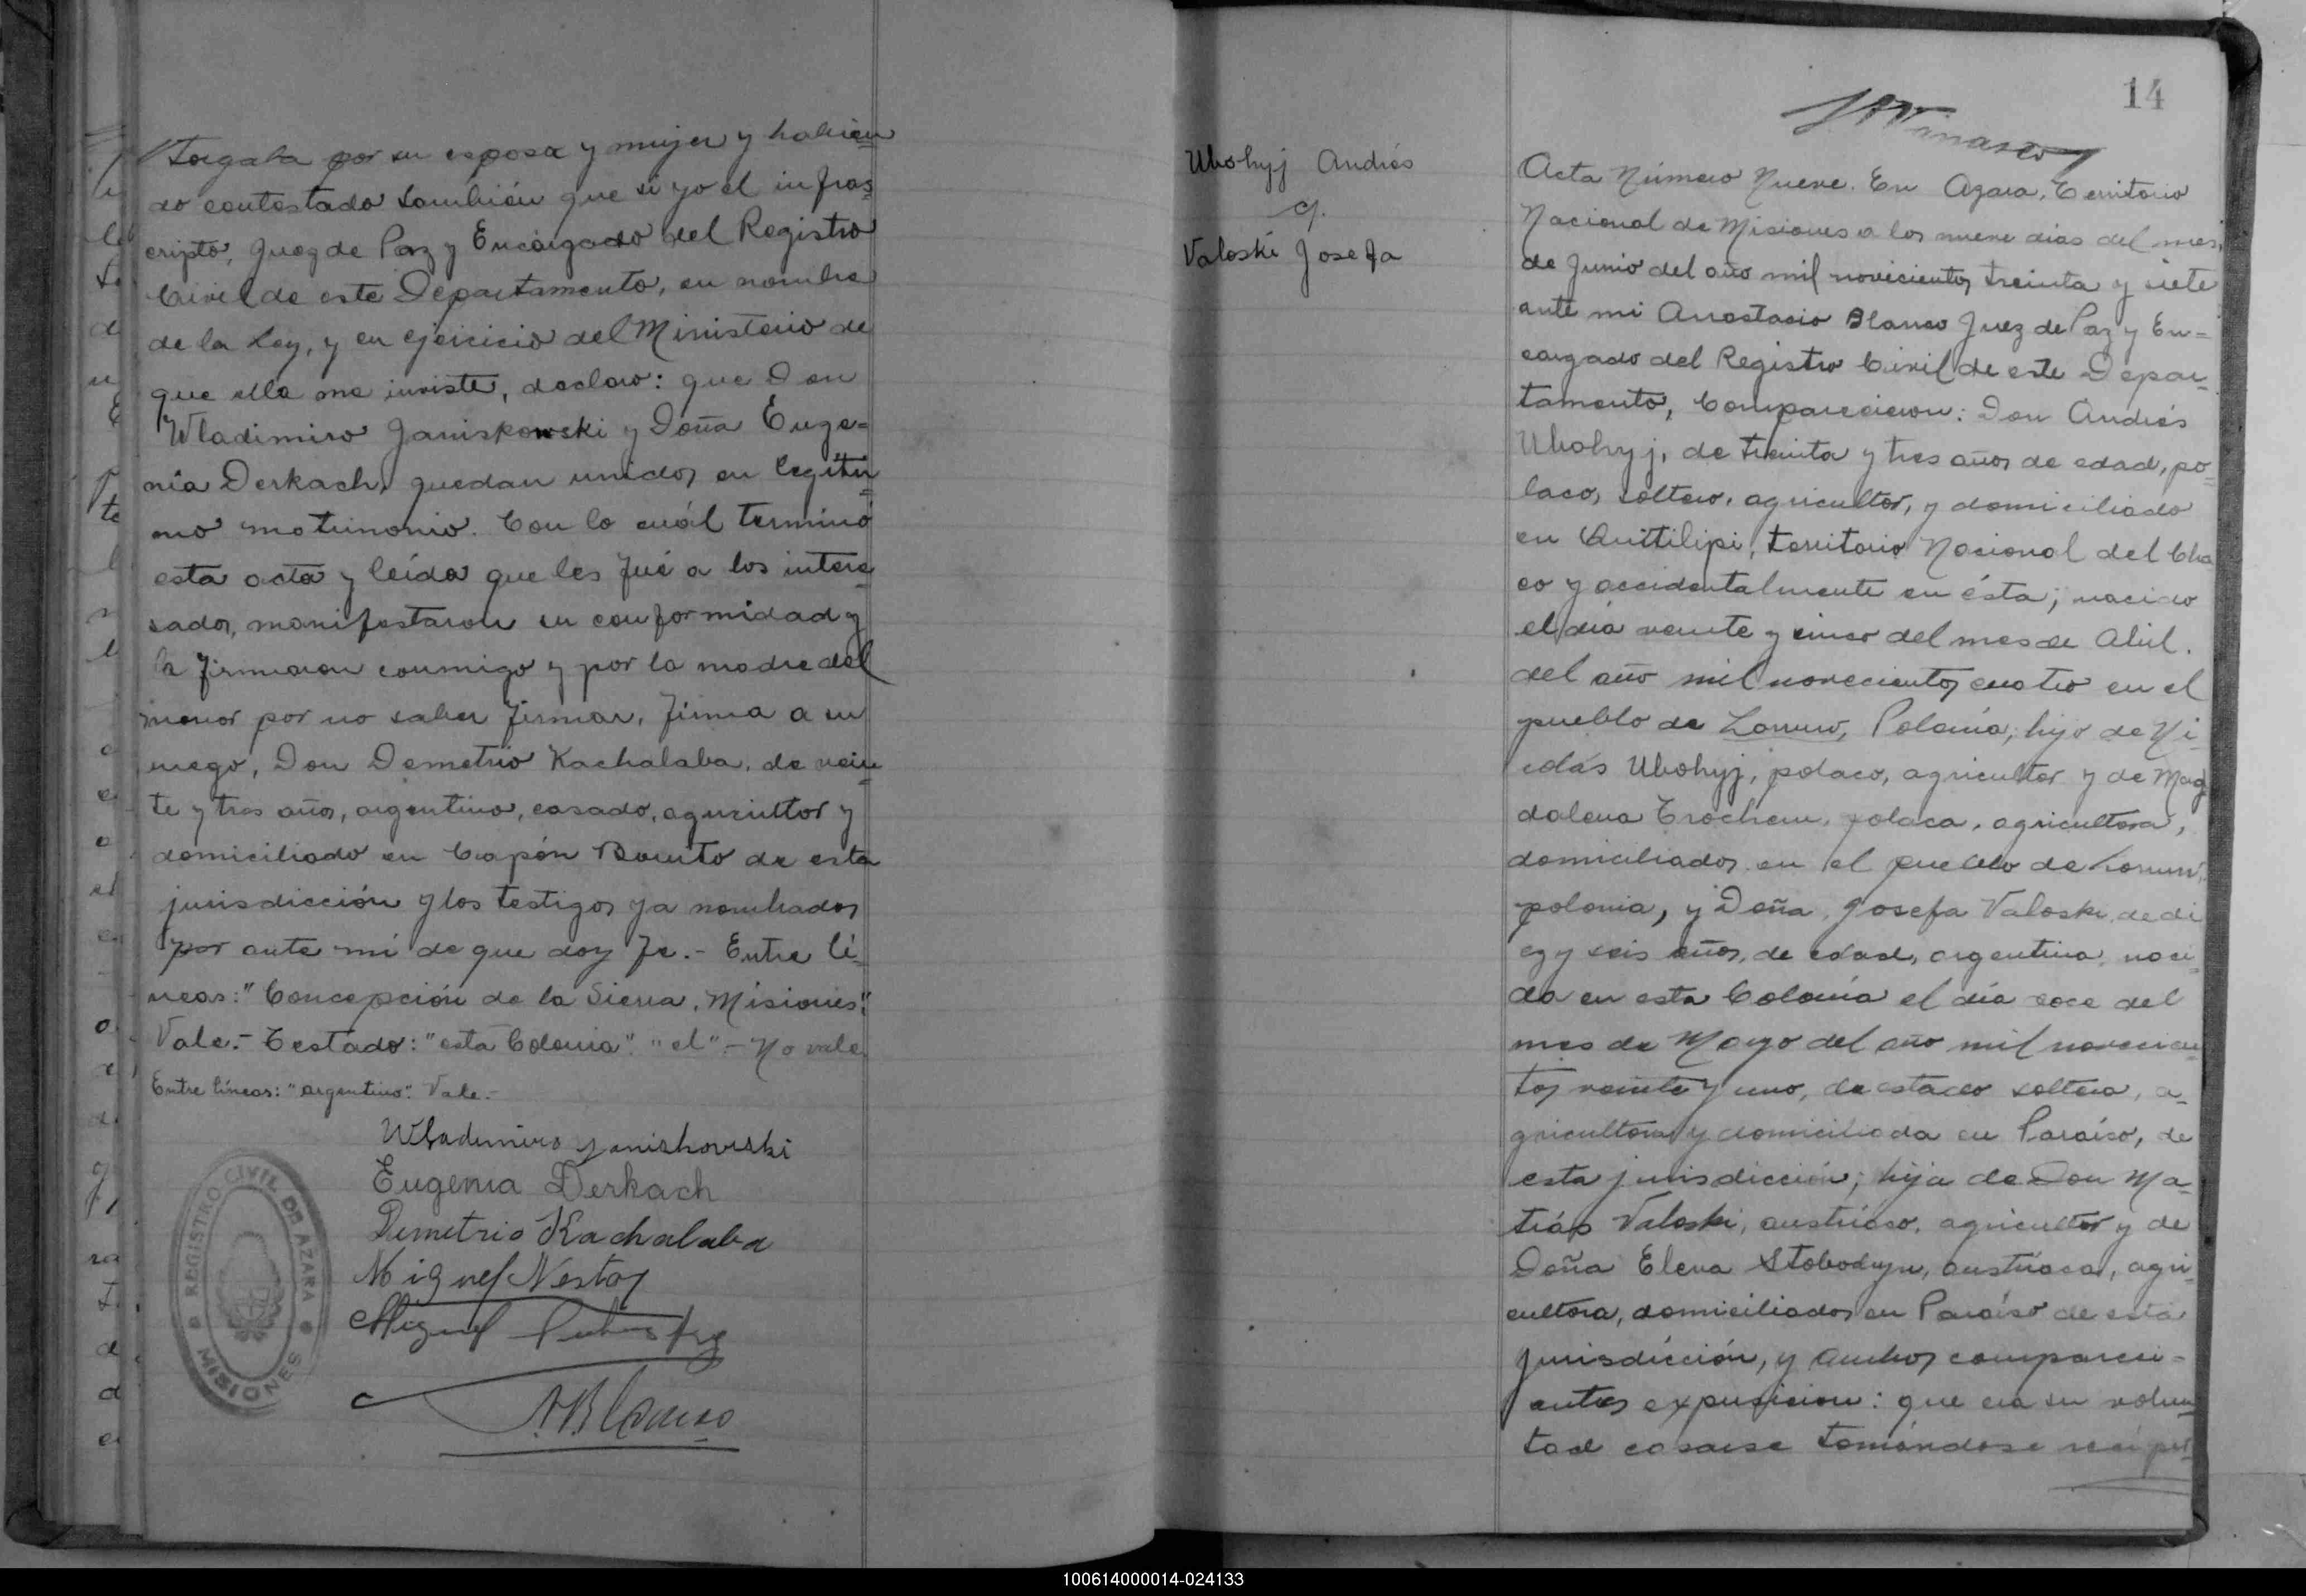 torgaba por su esposa y mujer y habien
do contestado también que si yo el infras
cripto, Juez de Paz y Encargado del Registro
Civil de este Departamento, en nombre
de la Ley, y en ejercicio del Ministerio de
que ella me inviste, declaro: que Don
Wladimiro Janiskowski y Doña Euge=
nia Derkach, quedan unidos en legíti=
mo matrimonio. Con lo cuál terminó
esta acta y leída que les fué a los intere
sados, manifestaron su conformidad y
la firmaron conmigo y por la madre del
menor por no saber firmar, firma a su
ruego, Don Demetrio Kachalaba, de vein
te y tres años, argentino, casado, agricultor y
domiciliado en Capón Bonito de esta
jurisdicción y los testigos ya nombrados
por ante mí de que doy fe.- Entre lí=
neas: "Concepción de la Sierra, Misiones".
Vale.- Testado: "esta Colonia" "el".- No vale
Entre líneas: "argentino". Vale.-
Wladimiro Janishovski
Eugenia Derkach
Demetrio Kachalaba
Miguel Nestor
Miguel
A. Blanco
REGISTRO CIVIL DE AZARA
MISIONES
14
Ubohyj Andrés
c.
Valoski Josefa
Acta Número Nueve. En Azara, Territorio
Nacional de Misiones a los nueve días del mes,
de Junio del año mil novecientos treinta y siete
ante mi Anastasio Blanco Juez de Paz y En=
cargado del Registro Civil de este Depar=
tamento, Comparecieron: Don Andrés
Ubohyj, de treinta y tres años de edad, po=
laco, soltero, agricultor, y domiciliado
en Quitilipi, territorio Nacional del Cha
co y accidentalmente en ésta; nacido
el día veinte y cinco del mes de Abril.
del año mil novecientos cuatro en el
pueblo de Polonia; hijo de Ni=
colás Ubohyj, polaco, agricultor y de Mag
dalena Trochem, polaca, agricultora,
domiciliados en el pueblo de
polonia, y Doña Josefa Valoski, de di
ez y seis años, de edad, argentina, naci=
da en esta Colonia el día doce del
mes de Mayo del año mil novecien
tos veinte y uno, de estado soltera, a=
gricultora y domiciliada en Paraíso, de
esta jurisdicción; hija de Don Ma=
tías Valoski, austríaco, agricultor y de
Doña Elena Stobodyn, austríaca, agri=
cultora, domiciliados en Paraíso de esta
Jurisdicción, y ambos compareci=
entes expusieron: que era su volun=
tad casarse tomándose recípro
100614000014-024133